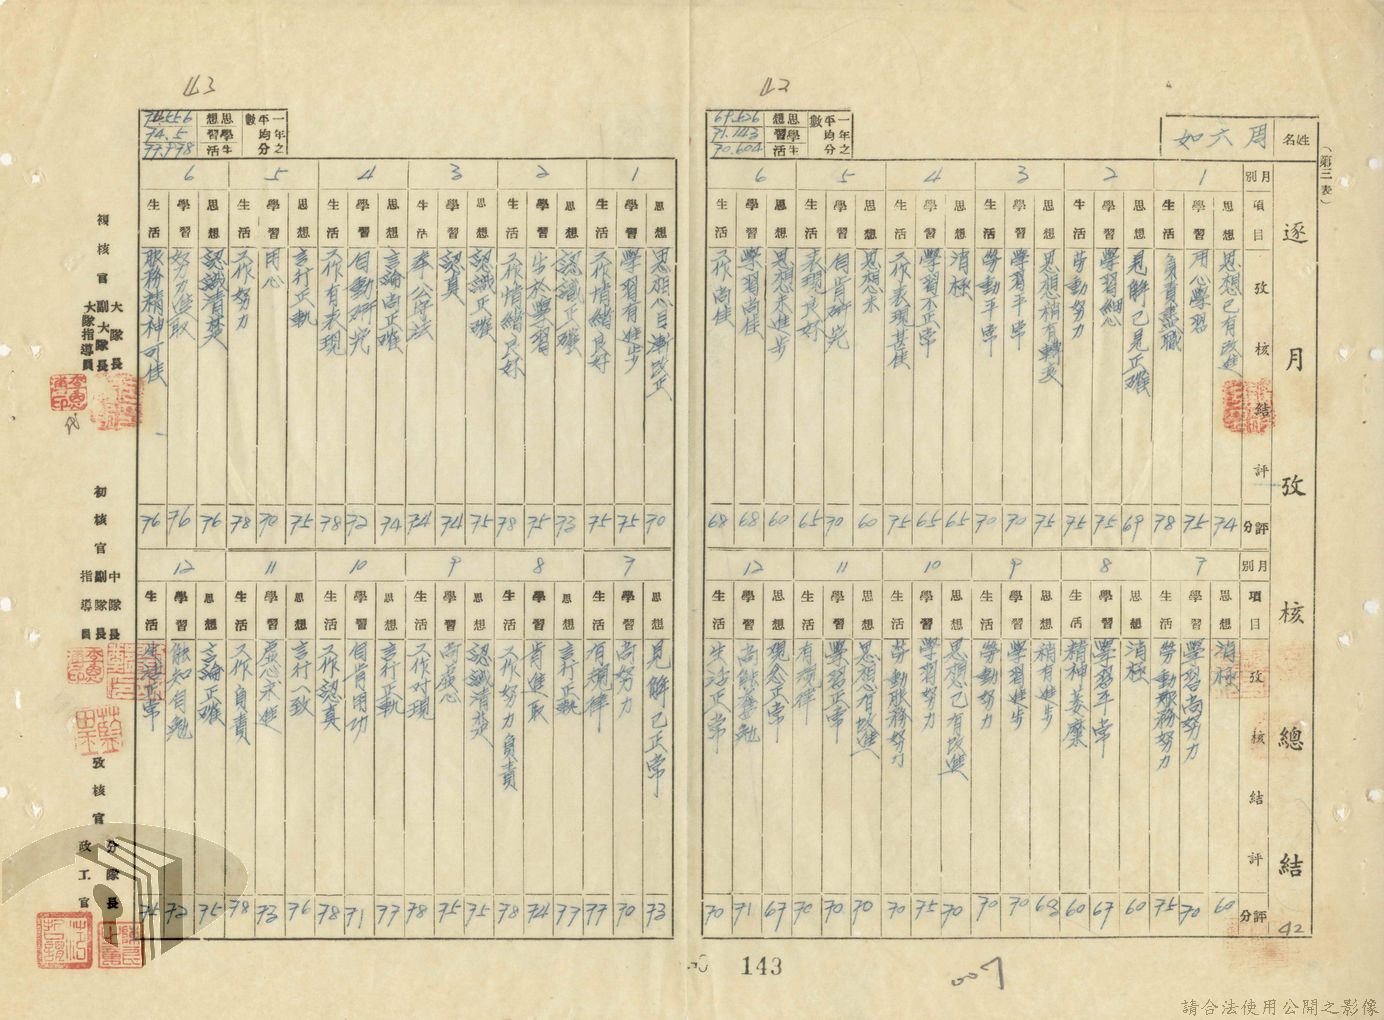 （第三表）
姓名
周六如
逐月攷核總結
42
42
一年之平均分數
思想 69.526
學習 71.143
生活 70.604
月別 1 2 3 4 5 6
項目 思想 學習 生活 思想 學習 生活 思想 學習 生活 思想 學習 生活 思想 學習 生活 思想 學習 生活
攷核結評
思想已有改進
用心學習
負責盡職
見解已見正確
學習細心
勞動努力
思想稍有轉變
學習平常
勞動平常
消極
學習不正常
工作表現甚佳
思想未
自肯研究
表現良好
思想未進步
學習尚佳
工作尚佳
評分 74 75 78 69 75 75 75 70 70 65 65 75 60 70 65 60 68 68
月別 7 8 9 10 11 12
項目 思想 學習 生活 思想 學習 生活 思想 學習 生活 思想 學習 生活 思想 學習 生活 思想 學習 生活
攷核結評
消極
學習尚努力
勞動服務努力
消極
學習平常
精神萎靡
稍有進步
學習進步
勞動努力
思想已有改進
學習努力
勞動服務努力
思想有改進
學習正常
有規律
觀念正常
尚能奮勉
生活正常
評分 60 70 75 60 67 60 68 70 70 70 75 70 70 70 70 67 71 70
43
一年之平均分數
思想
學習 74.5
生活
1 2 3 4 5 6
思想 學習 生活 思想 學習 生活 思想 學習 生活 思想 學習 生活 思想 學習 生活 思想 學習 生活
思想心目漸改正
學習有進步
工作情緒良好
認識正確
步於學習
工作情緒良好
認識正確
認真
奉公守法
言論尚正確
自動研究
工作有表現
言行正軌
用心
工作努力
認識清楚
努力進取
服務精神可佳
70 75 75 73 75 78 75 74 74 74 72 78 75 70 78 76 76 76
7 8 9 10 11 12
思想 學習 生活 思想 學習 生活 思想 學習 生活 思想 學習 生活 思想 學習 生活 思想 學習 生活
見解已正常
尚努力
有規律
言行正軌
肯進取
工作努力負責
認識清楚
尚虛心
工作好現
言行正軌
自肯用功
工作認真
言行一致
虛心求進
工作負責
言論正確
能知自勉
生活正常
73 70 77 77 74 78 75 75 78 77 71 78 76 73 78 75 72 75
複核官 大隊長 副大隊長 大隊指導員
初核官 中隊長 副隊長 指導員
攷核官 分隊長 政工官
143
007
請合法使用公開之影像